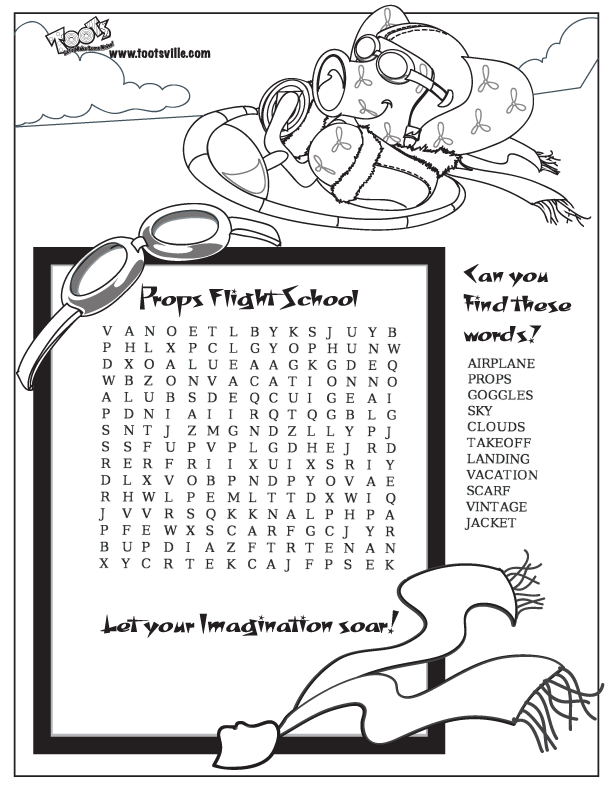 Toots
www.tootsville.com
Props Flight School
V A N O E T L B Y K S J U Y B
P H L X P C L G Y O P H U N W
D X O A L U E A A G K G D E Q
W B Z O N V A C A T I O N N O
A L U B S D E Q C U I G E A I
P D N I A I I R Q T Q G B L G
S N T J Z M G N D Z L L Y P J
S S F U P V P L G D H E J R D
R E R F R I I X U I X S R I Y
D L X V O B P N D P Y O V A E
R H W L P E M L T T D X W I Q
J V V R S Q K K N A L P H P A
P F E W X S C A R F G C J Y R
B U P D I A Z F T R T E N A N
X Y C R T E K C A J F P S E K
Let your Imagination soar!
Can you
find these
words?
AIRPLANE
PROPS
GOGGLES
SKY
CLOUDS
TAKEOFF
LANDING
VACATION
SCARF
VINTAGE
JACKET